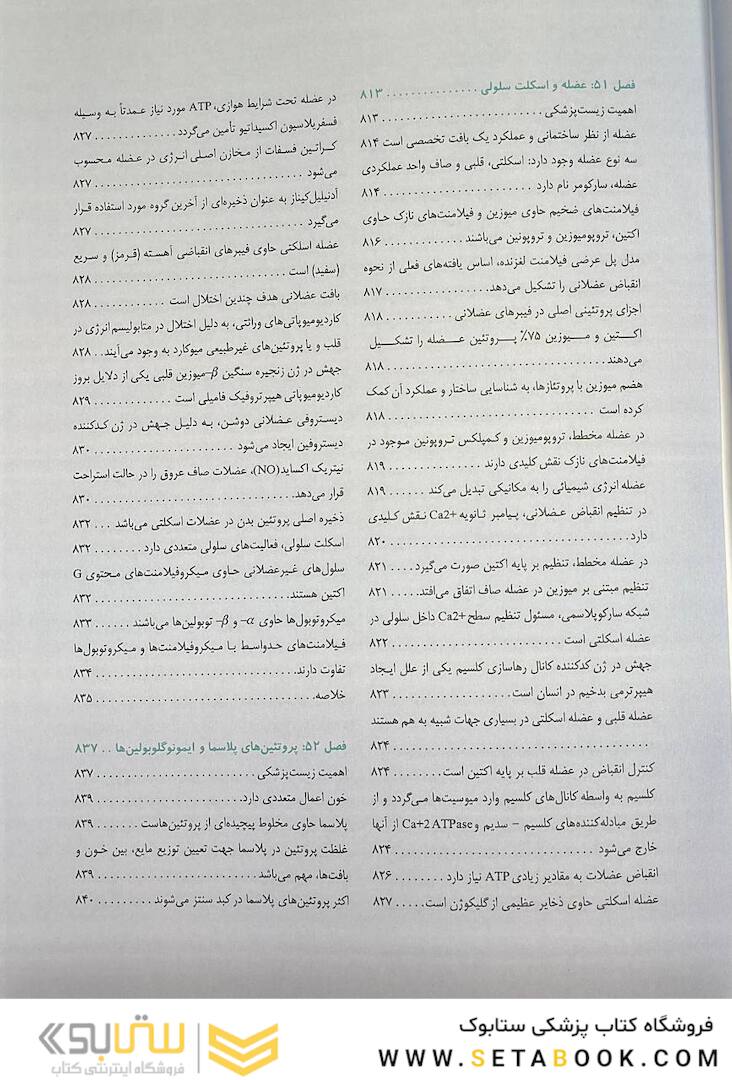 فصل ۵۱: عضله و اسکلت سلولی . . . . . . . . . . . . . . . ۸۱۳
اهمیت زیست‌پزشکی . . . . . . . . . . . . . . . . . . . . . . . . ۸۱۳
عضله از نظر ساختمانی و عملکرد یک بافت تخصصی است ۸۱۴
سه نوع عضله وجود دارد: اسکلتی، قلبی و صاف واحد عملکردی
عضله، سارکومر نام دارد . . . . . . . . . . . . . . . . . . . . . . ۸۱۴
فیلامنت‌های ضخیم حاوی میوزین و فیلامنت‌های نازک حاوی
اکتین، تروپومیوزین و تروپونین می‌باشند . . . . . . . . . . . . ۸۱۶
مدل پل عرضی فیلامنت لغزنده، اساس یافته‌های فعلی از نحوه
انقباض عضلانی را تشکیل می‌دهد. . . . . . . . . . . . . . . . ۸۱۷
اجزای پروتئینی اصلی در فیبرهای عضلانی . . . . . . . . . . ۸۱۸
اکتین و میوزین ۷۵٪ پروتئین عضله را تشکیل
می‌دهند. . . . . . . . . . . . . . . . . . . . . . . . . . . . . . . . . ۸۱۸
هضم میوزین با پروتئازها، به شناسایی ساختار و عملکرد آن کمک
کرده است . . . . . . . . . . . . . . . . . . . . . . . . . . . . . . . ۸۱۸
در عضله مخطط، تروپومیوزین و کمپلکس تروپونین موجود در
فیلامنت‌های نازک نقش کلیدی دارند . . . . . . . . . . . . . . ۸۱۹
عضله انرژی شیمیائی را به مکانیکی تبدیل می‌کند . . . . . . ۸۱۹
در تنظیم انقباض عضلانی، پیامبر ثانویه Ca2+ نقش کلیدی
دارد. . . . . . . . . . . . . . . . . . . . . . . . . . . . . . . . . . . ۸۲۰
در عضله مخطط، تنظیم بر پایه اکتین صورت می‌گیرد. . . . ۸۲۱
تنظیم مبتنی بر میوزین در عضله صاف اتفاق می‌افتد. . . . . ۸۲۱
شبکه سارکوپلاسمی، مسئول تنظیم سطح Ca2+ داخل سلولی در
عضله اسکلتی است . . . . . . . . . . . . . . . . . . . . . . . . . ۸۲۲
جهش در ژن کدکننده کانال رهاسازی کلسیم یکی از علل ایجاد
هیپرترمی بدخیم در انسان است. . . . . . . . . . . . . . . . . . ۸۲۳
عضله قلبی و عضله اسکلتی در بسیاری جهات شبیه به هم هستند
. . . . . . . . . . . . . . . . . . . . . . . . . . . . . . . . . . . . . . ۸۲۴
کنترل انقباض در عضله قلب بر پایه اکتین است. . . . . . . . ۸۲۴
کلسیم به واسطه کانال‌های کلسیم وارد میوسیت‌ها می‌گردد و از
طریق مبادله‌کننده‌های کلسیم – سدیم و Ca+2 ATPase از آنها
خارج می‌شود . . . . . . . . . . . . . . . . . . . . . . . . . . . . . ۸۲۴
انقباض عضلات به مقادیر زیادی ATP نیاز دارد . . . . . . . . ۸۲۶
عضله اسکلتی حاوی ذخایر عظیمی از گلیکوژن است. . . . . ۸۲۷
در عضله تحت شرایط هوازی، ATP مورد نیاز عمدتاً به وسیله
فسفریلاسیون اکسیداتیو تأمین می‌گردد. . . . . . . . . . . . . . ۸۲۷
کراتین فسفات از مخازن اصلی انرژی در عضله محسوب
می‌شود . . . . . . . . . . . . . . . . . . . . . . . . . . . . . . . . . ۸۲۷
آدنیلیل‌کیناز به عنوان ذخیره‌ای از آخرین گروه مورد استفاده قرار
می‌گیرد . . . . . . . . . . . . . . . . . . . . . . . . . . . . . . . . . ۸۲۷
عضله اسلکتی حاوی فیبرهای انقباضی آهسته (قرمز) و سریع
(سفید) است . . . . . . . . . . . . . . . . . . . . . . . . . . . . . . ۸۲۸
بافت عضلانی هدف چندین اختلال است . . . . . . . . . . . . ۸۲۸
کاردیومیوپاتی‌های وراثتی، به دلیل اختلال در متابولیسم انرژی در
قلب و یا پروتئین‌های غیرطبیعی میوکارد به وجود می‌آیند. . ۸۲۸
جهش در ژن زنجیره سنگین β-میوزین قلبی یکی از دلایل بروز
کاردیومیوپاتی هیپرتروفیک فامیلی است . . . . . . . . . . . . ۸۲۹
دیستروفی عضلانی دوشن، به دلیل جهش در ژن کدکننده
دیستروفین ایجاد می‌شود . . . . . . . . . . . . . . . . . . . . . . ۸۳۰
نیتریک اکساید(NO)، عضلات صاف عروق را در حالت استراحت
قرار می‌دهد. . . . . . . . . . . . . . . . . . . . . . . . . . . . . . . ۸۳۰
ذخیره اصلی پروتئین بدن در عضلات اسکلتی می‌باشد . . . ۸۳۲
اسکلت سلولی، فعالیت‌های سلولی متعددی دارد . . . . . . . . ۸۳۲
سلول‌های غیرعضلانی حاوی میکروفیلامنت‌های محتوی G
اکتین هستند. . . . . . . . . . . . . . . . . . . . . . . . . . . . . . ۸۳۲
میکروتوبول‌ها حاوی α- و β- توبولین‌ها می‌باشند . . . . . . ۸۳۳
فیلامنت‌های حدواسط با میکروفیلامنت‌ها و میکروتوبول‌ها
تفاوت دارند. . . . . . . . . . . . . . . . . . . . . . . . . . . . . . . ۸۳۴
خلاصه. . . . . . . . . . . . . . . . . . . . . . . . . . . . . . . . . . ۸۳۵
فصل ۵۲: پروتئین‌های پلاسما و ایمونوگلوبولین‌ها . . ۸۳۷
اهمیت زیست‌پزشکی . . . . . . . . . . . . . . . . . . . . . . . . ۸۳۷
خون اعمال متعددی دارد. . . . . . . . . . . . . . . . . . . . . . ۸۳۹
پلاسما حاوی مخلوط پیچیده‌ای از پروتئین‌هاست . . . . . . . ۸۳۹
غلظت پروتئین در پلاسما جهت تعیین توزیع مایع، بین خون و
بافت‌ها، مهم می‌باشد . . . . . . . . . . . . . . . . . . . . . . . . ۸۳۹
اکثر پروتئین‌های پلاسما در کبد سنتز می‌شوند . . . . . . . . . ۸۴۰
فروشگاه کتاب پزشکی ستابوک
WWW.SETABOOK.COM
ستابوک
فروشگاه اینترنتی کتاب